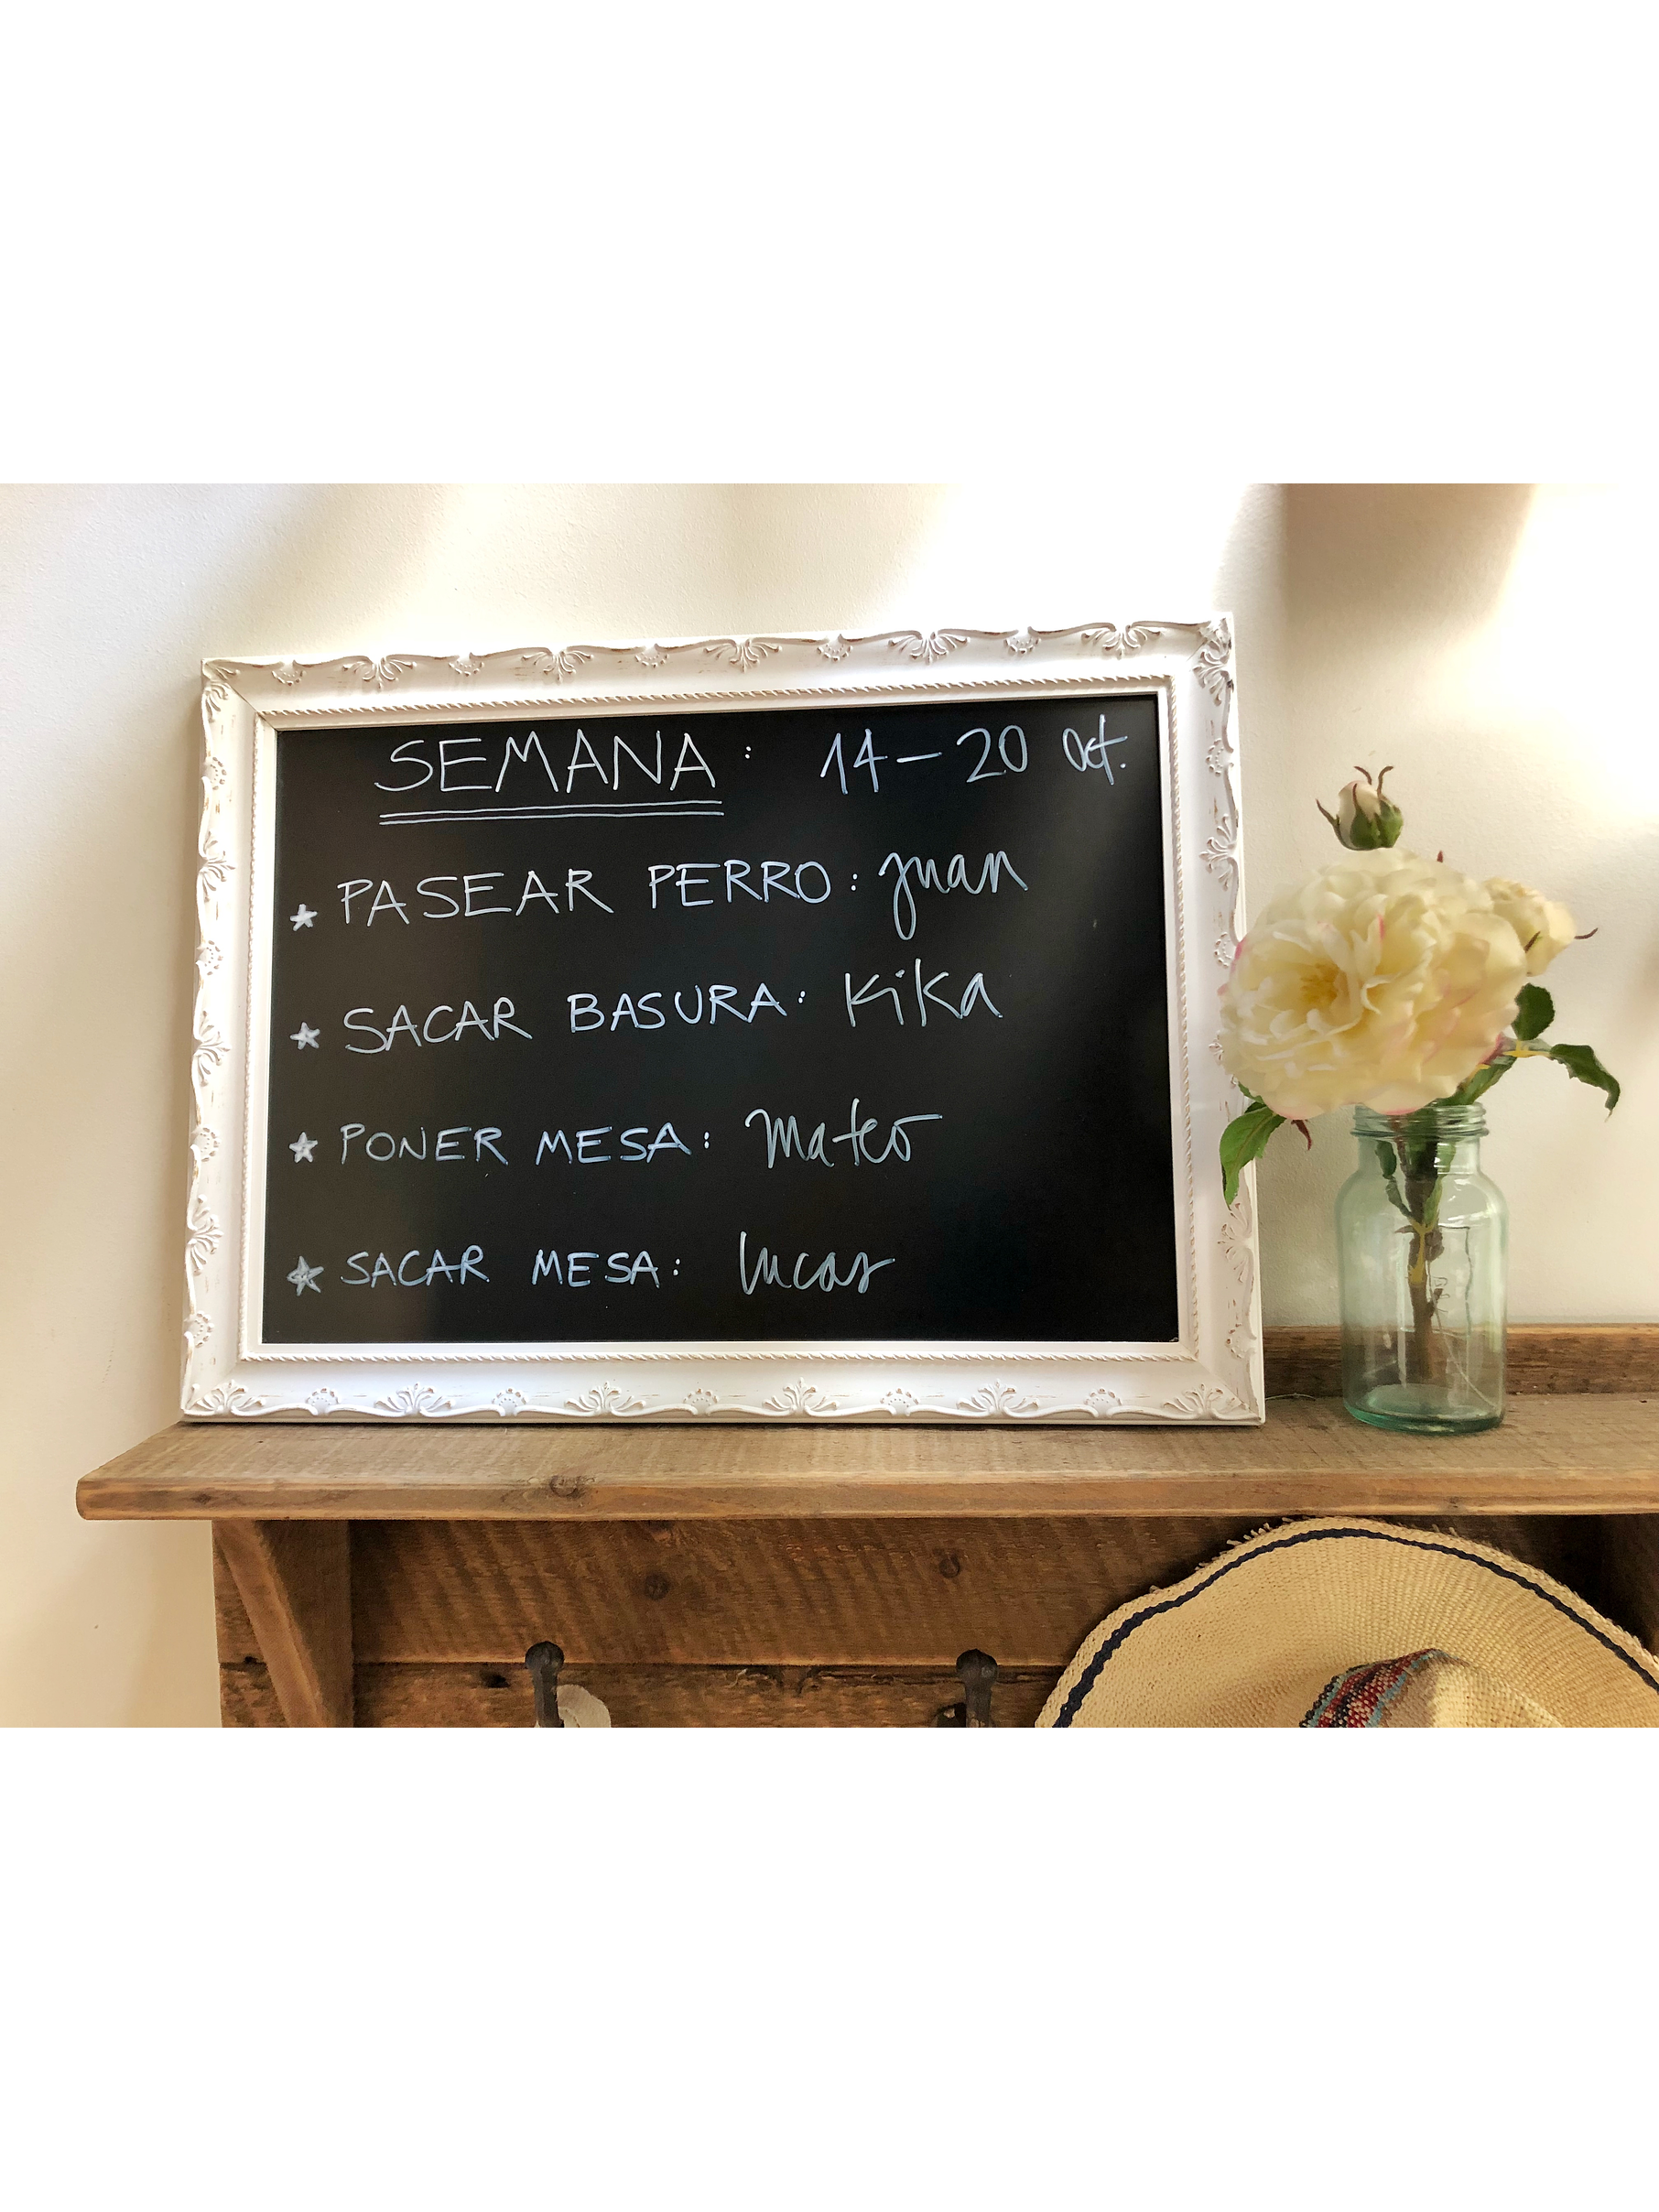 SEMANA: 14-20 Oct.
★ PASEAR PERRO: Juan
★ SACAR BASURA: Kika
★ PONER MESA: Mateo
★ SACAR MESA: Lucas